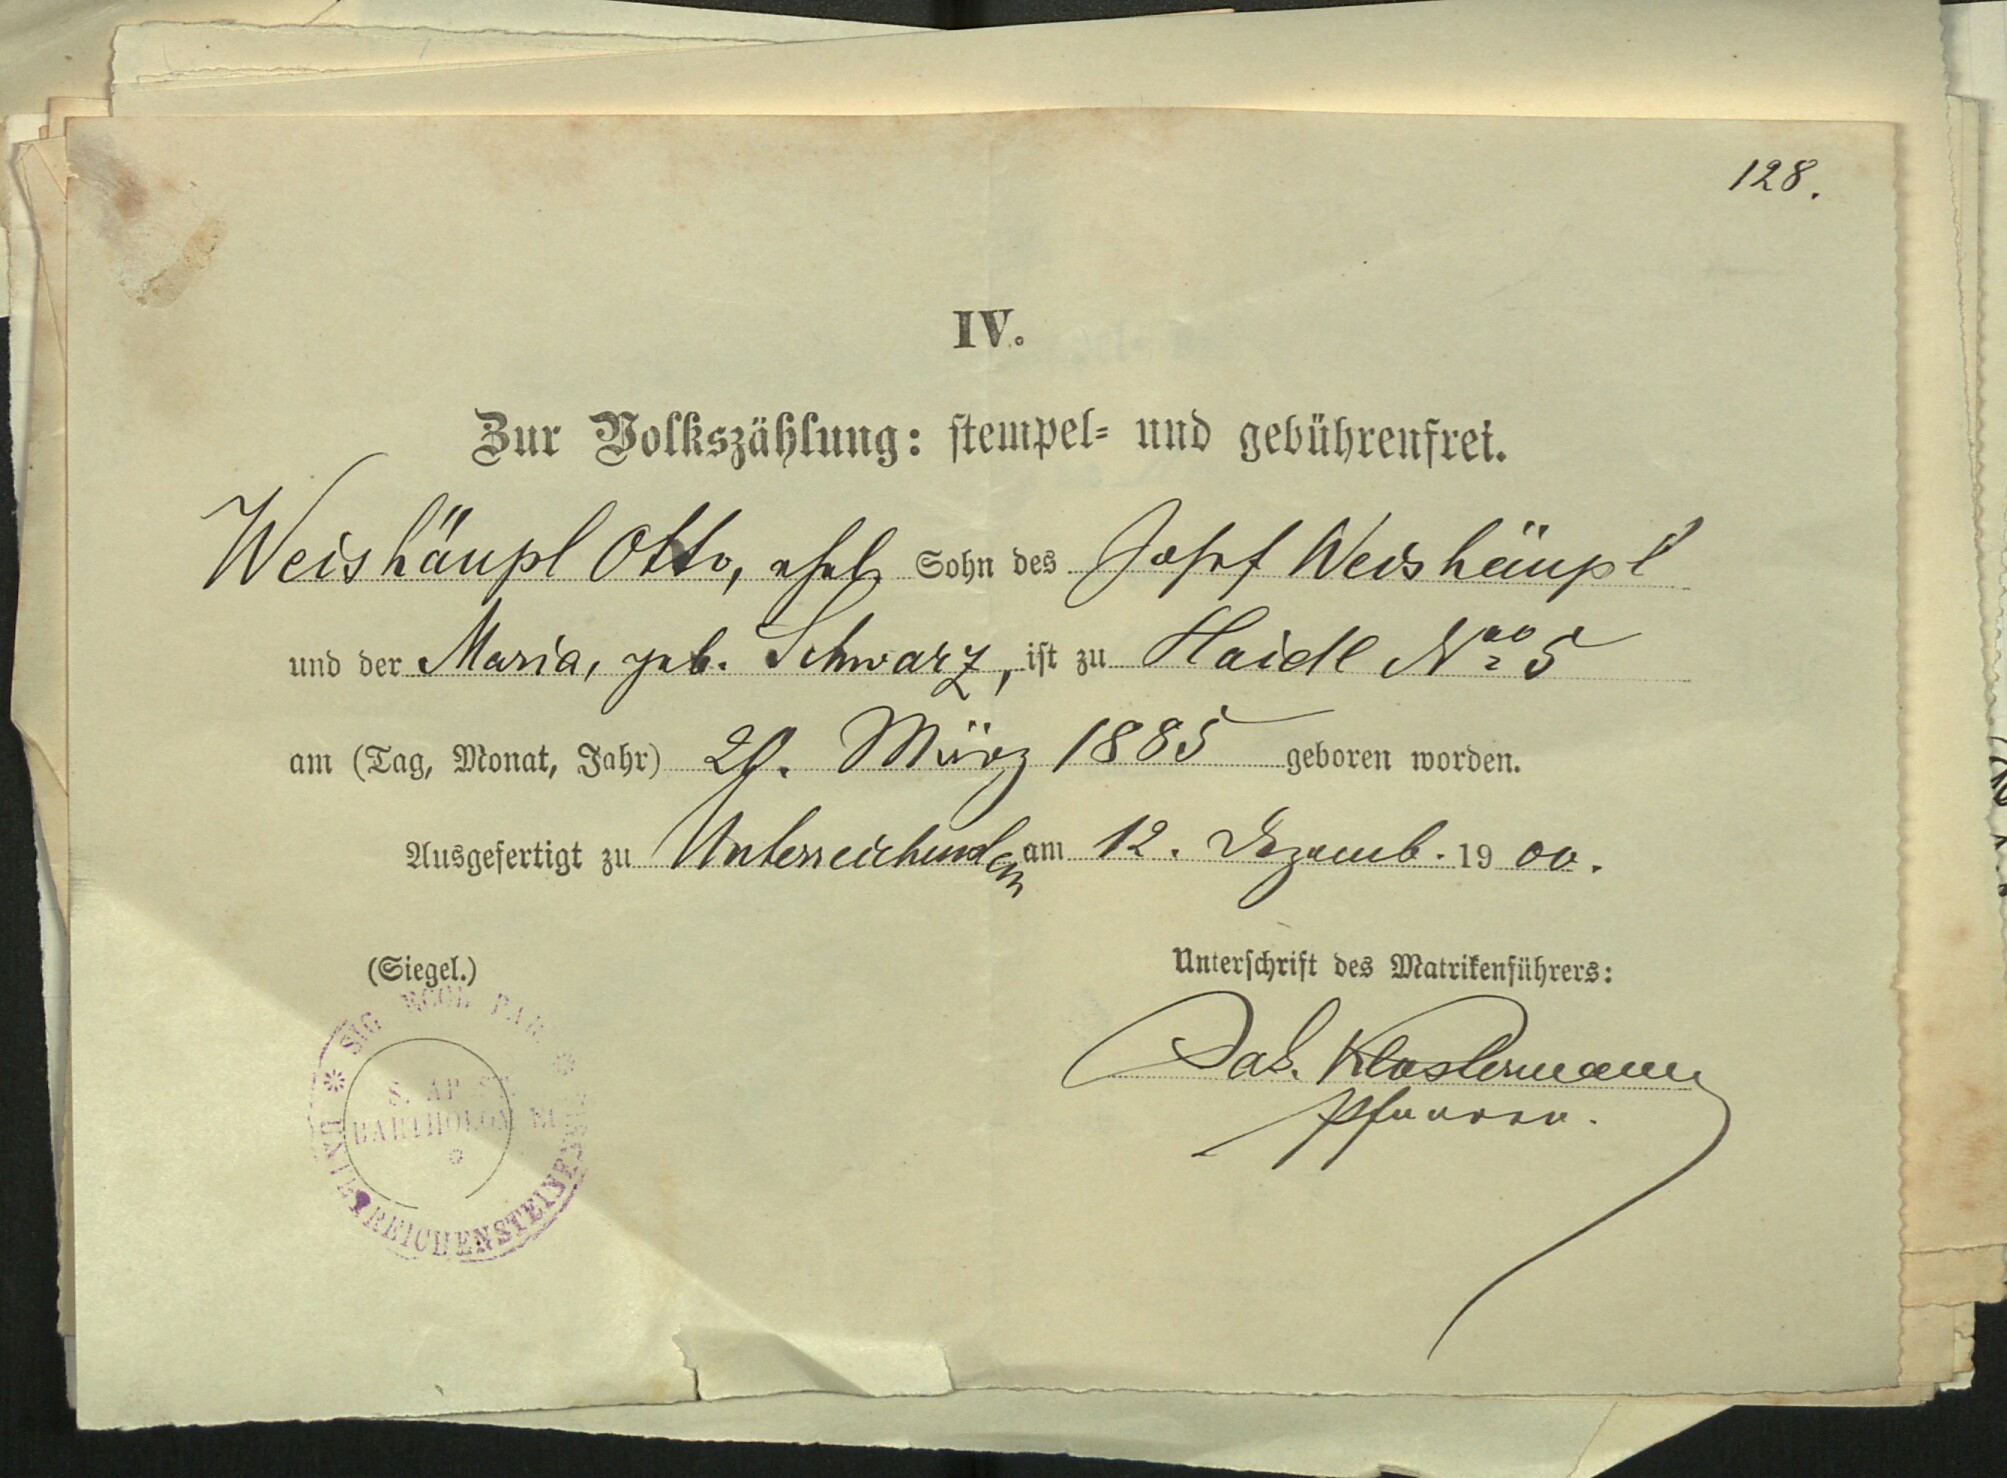 128.
IV.
Zur Volkszählung: stempel- und gebührenfrei.
Weishäupl Otto, ehel. Sohn des Josef Weishäupl
und der Maria, geb. Schwarz, ist zu Haidl No 5
am (Tag, Monat, Jahr) 29. März 1885 geboren worden.
Ausgefertigt zu am 12. Dezemb. 1900.
(Siegel.)
Unterschrift des Matrikenführers:
Klostermann
Pfarrer.
SIG ECCL PAR
S. AP
BARTHOLOM
REICHENSTEINENSIS